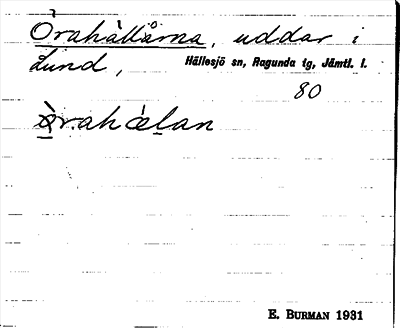 Òrahàllårna, uddar i
Lund, Hällesjö sn, Ragunda tg, Jämtl. l.
80
ø̀rahœ́lan
E. BURMAN 1931